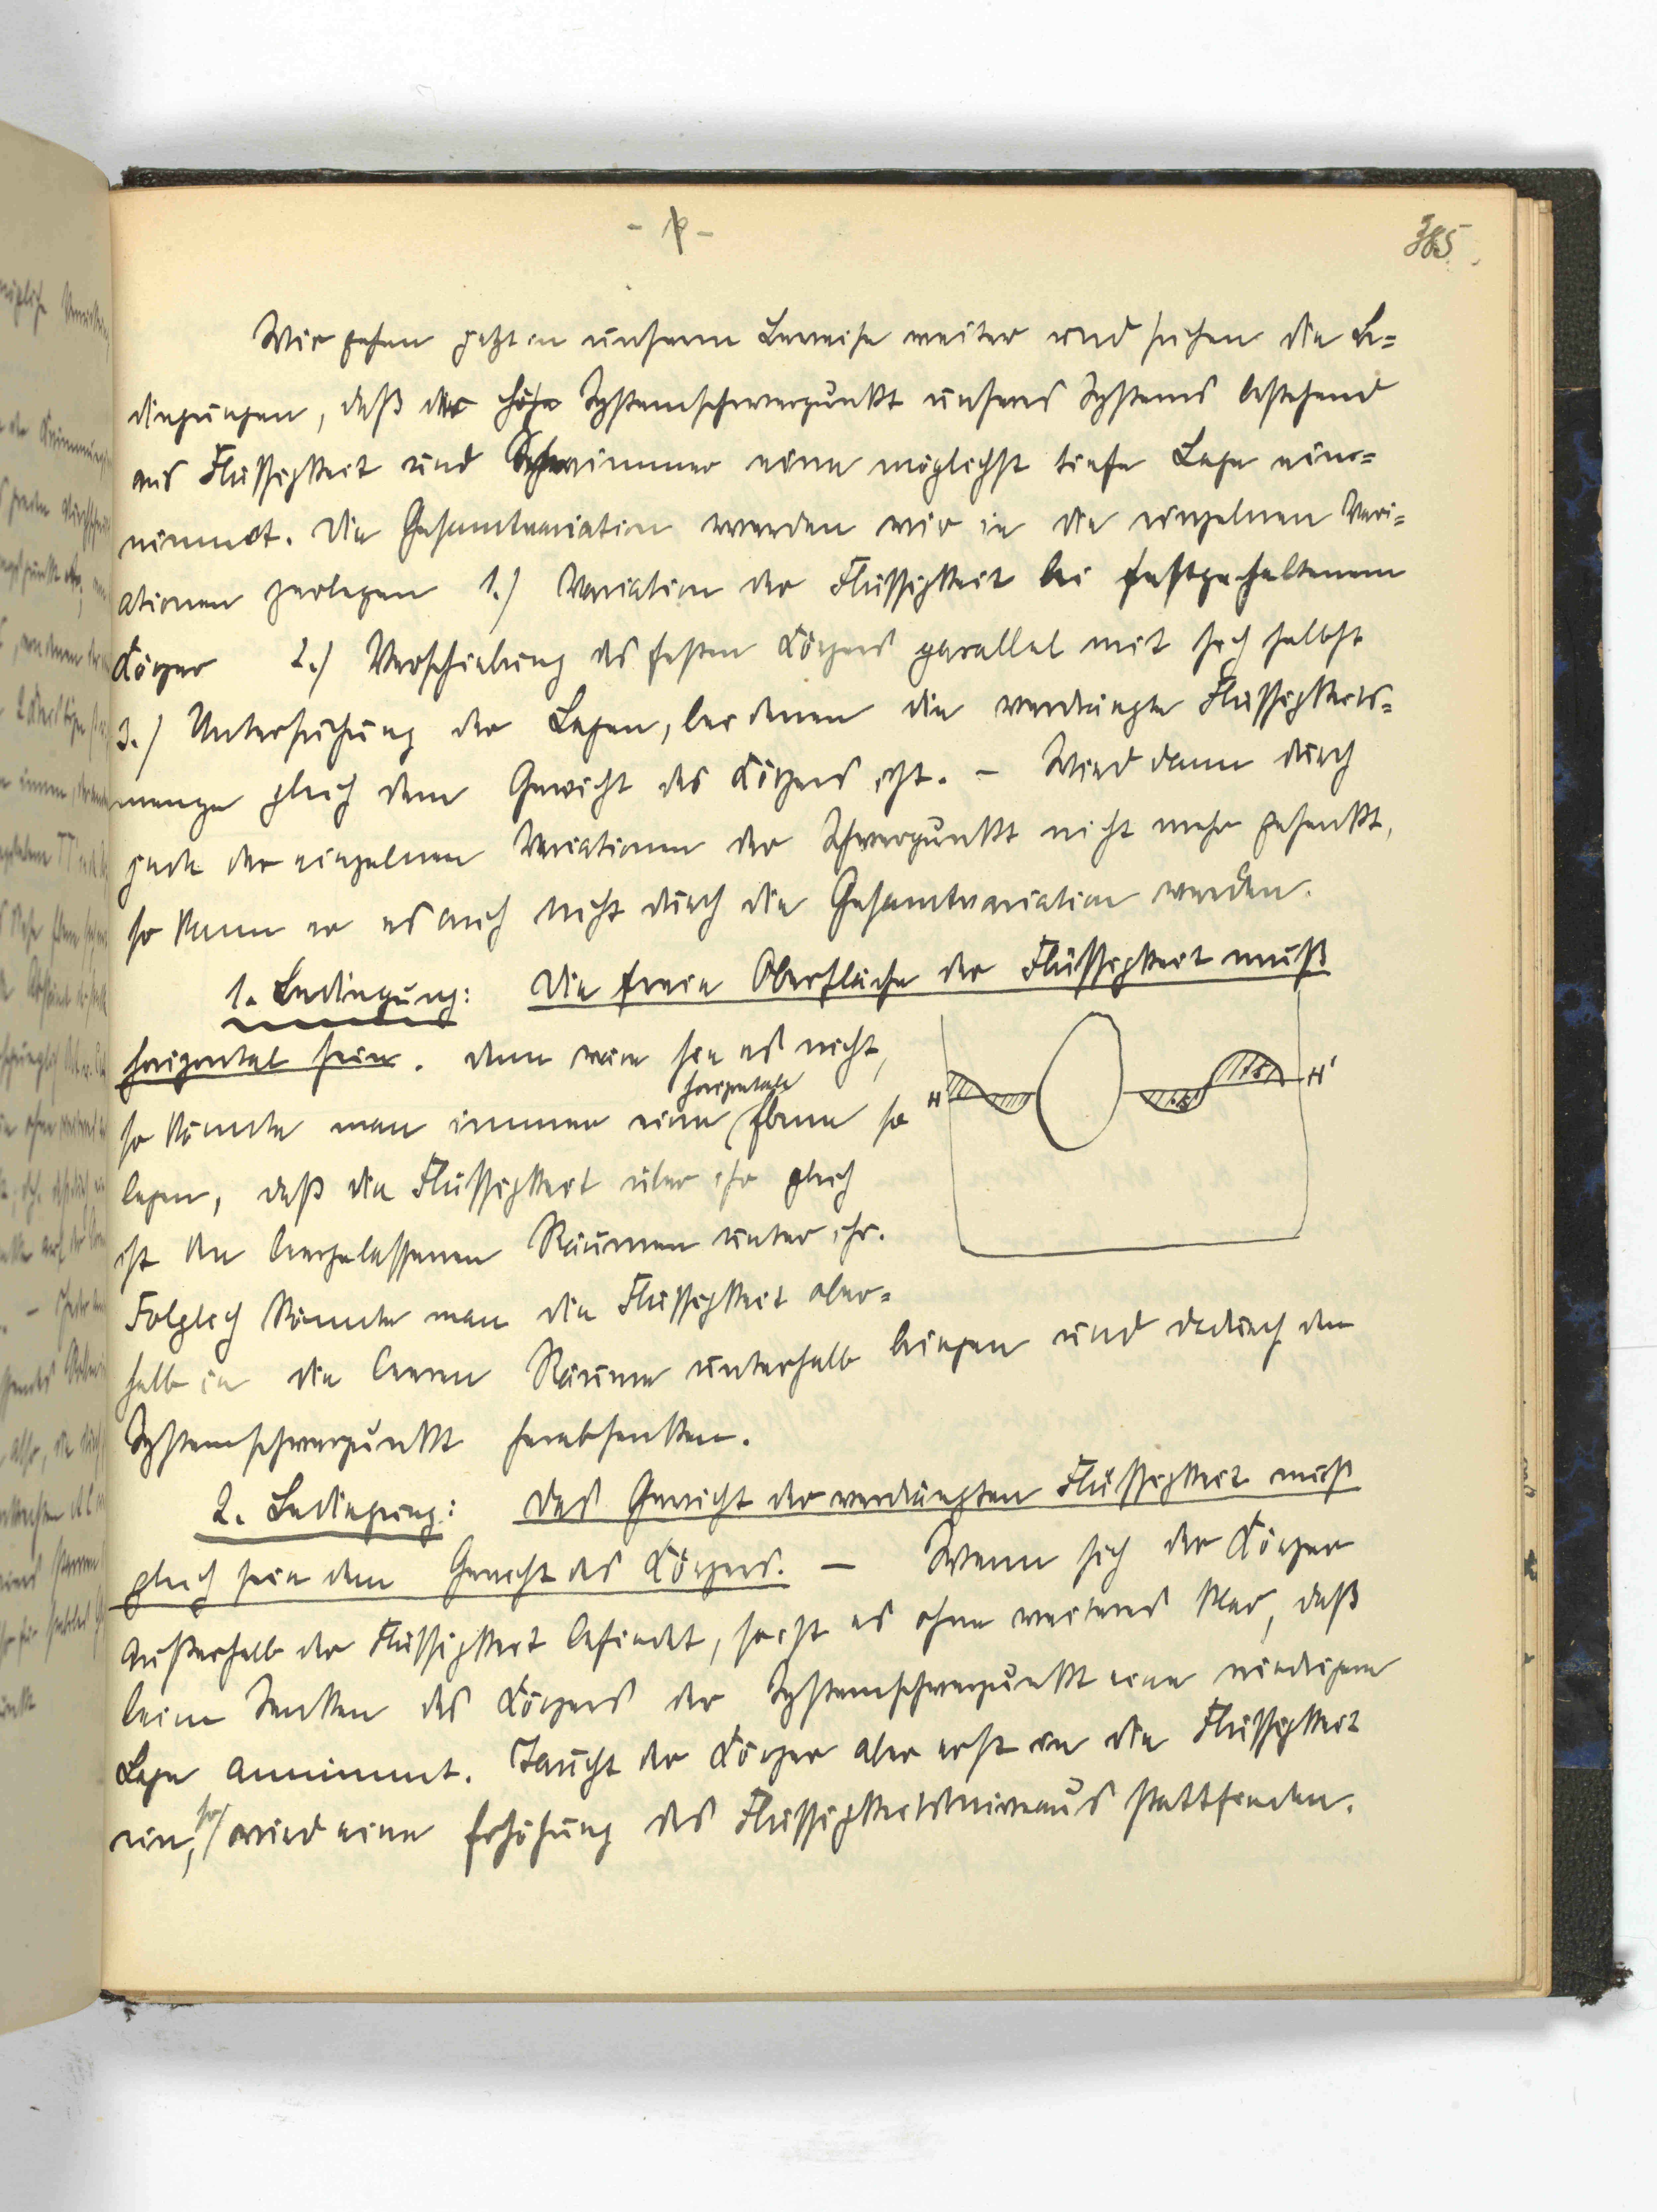 385.
Wir gehen jetzt in unserm Beweise weiter und suchen die Be=
dingungen, daß der Systemschwerpunkt unseres Systems bestehend
aus Flüssigkeit und Schwimmer eine möglichst tiefe Lage ein=
nimmt. Die Gesamtvariation werden wir in die einzelnen Vari=
ationen zerlegen 1.) Variation der Flüssigkeit bei festgehaltenem
Körper 2.) Verschiebung des festen Körpers parallel mit sich selbst
3.) Untersuchung der Lagen, bei denen die verdrängte Flüssigkeits=
menge gleich dem Gewicht des Körpers ist. – Wird dann durch
jede der einzelnen Variationen der Schwerpunkt nicht mehr gesenkt,
so kann er es auch nicht durch die Gesamtvariation werden.
1. Bedingung: Die freie Oberfläche der Flüssigkeit muß
horizontal sein. denn wäre sie es nicht,
so könnte man immer eine horizontale Ebene so
legen, daß die Flüssigkeit über ihr gleich
ist den leergelassenen Räumen unter ihr.
Folglich könnte man die Flüssigkeit ober=
halb in die leeren Räume unterhalb bringen und dadurch den
Systemschwerpunkt herabsenken.
H H'
2. Bedingung: Das Gewicht der verdrängten Flüssigkeit muß
gleich sein dem Gewicht des Körpers. – Wenn sich der Körper
außerhalb der Flüssigkeit befindet, so ist es ohne weiteres klar, daß
beim Senken des Körpers der Systemschwerpunkt eine niedrigere
Lage annimmt. Taucht der Körper aber erst in die Flüssigkeit
ein, so wird eine Erhöhung des Flüssigkeitsniveaus stattfinden.